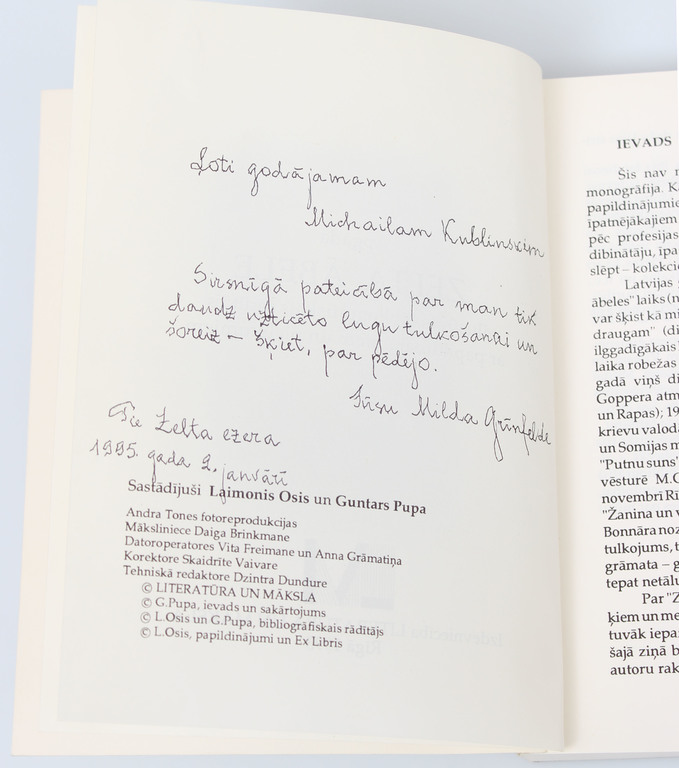 Ļoti godājamam
Michailam Kublinskim
Sirsnīgā pateicībā par man tik
daudz uzticēto lugu tulkošanai un
šoreiz – šķiet, par pēdējo.
Jūsu Milda Grīnfelde
Pie Zelta ezera
1995. gada 2. janvārī
Sastādījuši Laimonis Osis un Guntars Pupa
Andra Tones fotoreprodukcijas
Māksliniece Daiga Brinkmane
Datoroperatores Vita Freimane un Anna Grāmatiņa
Korektore Skaidrīte Vaivare
Tehniskā redaktore Dzintra Dundure
© LITERATŪRA UN MĀKSLA
© G.Pupa, ievads un sakārtojums
© L.Osis un G.Pupa, bibliogrāfiskais rādītājs
© L.Osis, papildinājumi un Ex Libris
IEVADS
Šis nav
monogrāfija.
papildinājumie
īpatnējākajiem
pēc profesijas
dibinātāju, īpa
slēpt – kolekcio
Latvijas
ābeles" laiks
var šķist kā mi
draugam" (di
ilggadīgākais
laika robežas
gadā viņš di
Goppera atm
un Rapas); 19
krievu valodā
un Somijas m
"Putnu suns"
vēsturē M.G
novembrī Rī
"Žanina un v
Bonnāra noz
tulkojums, t
grāmata – g
tepat netālu
Par "Z
ķiem un me
tuvāk iepa
šajā ziņā b
autoru rak